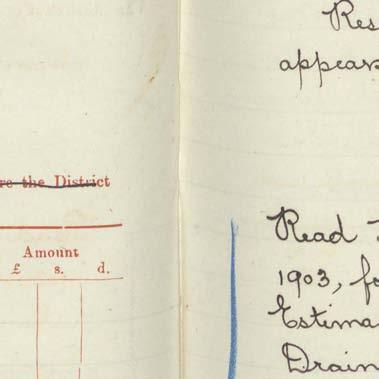 re the District
Amount
£ s. d.
Res
appears
Read
1903, fo
Estima
Drain